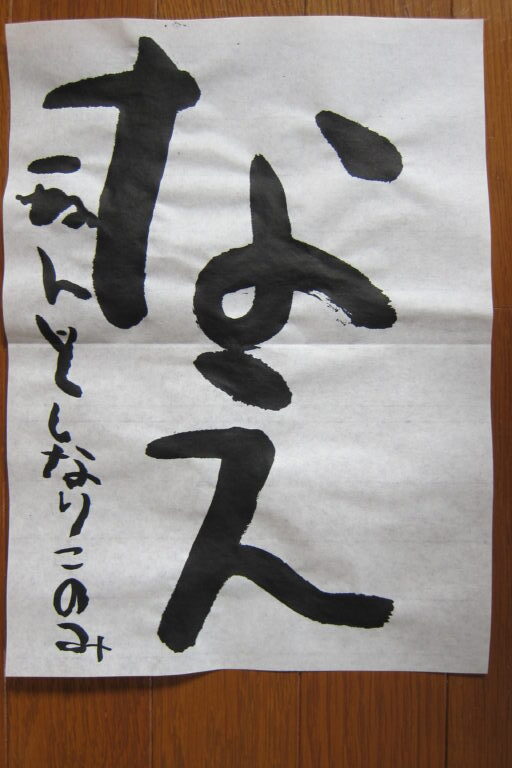 なえ
一ねんとしなりこのみ